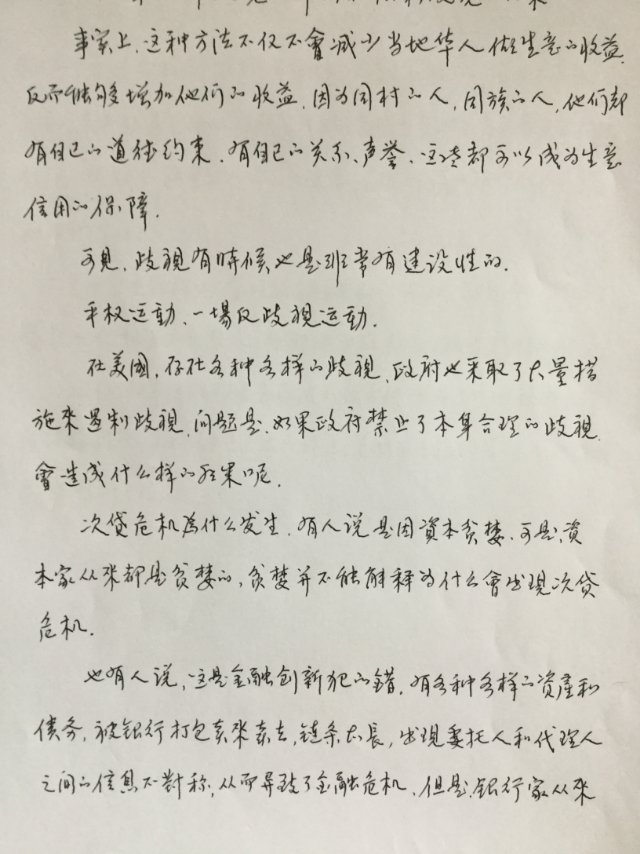 事实上,这种方法不仅不會减少当地华人做生意的收益,
反而能够增加他们的收益,因为同村的人,同族的人,他们都
有自己的道德约束,有自己的关系、声誉,这些都可以成为生意
信用的保障.
可見,歧視有時候也是非常有建设性的.
平权运动,一場反歧視运动.
在美國,存在各种各样的歧視,政府也采取了大量措
施來遏制歧視,问题是,如果政府禁止了本身合理的歧視,
會造成什么样的结果呢.
次贷危机為什么发生,有人说是因資本贪婪,可是,資
本家从來都是贪婪的,贪婪并不能解释为什么會出現次贷
危机.
也有人说,这是金融创新犯的錯,有各种各样的资產和
债务,被銀行打包卖來卖去,链条太長,出現委托人和代理人
之间的信息不對称,从而导致了金融危机,但是,銀行家从來